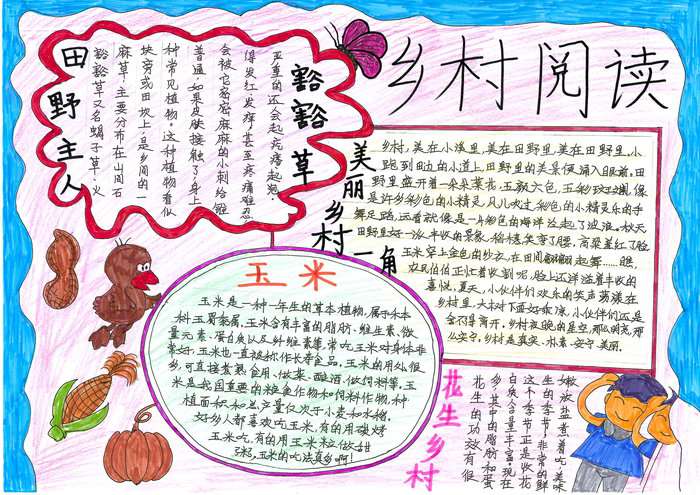 乡村阅读
田野主人
豁豁草
豁豁草又名蝎子草、火
麻草,主要分布在山间石
块旁或田坎上,是乡间的一
种常见植物。这种植物看似
普通,如果皮肤接触了,身上
会被它密密麻麻的小刺给蛰
得发红、发痒甚至疼痛难忍
严重的还会起疙瘩起泡。
美丽乡村一角
乡村,美在小溪里,美在田野里,美在田野里。小
跑到田边的小道上,田野里的美景便涌入眼前。田
野里盛开着一朵朵菜花,五颜六色,五彩缤纷,像
是许多彩色的小精灵,风儿吹过彩色的小精灵乐的手
舞足蹈,远看就像是一片彩色的海洋泛起了波浪。秋天
田野里好一派丰收的景象,稻穗笑弯了腰,高粱羞红了脸
玉米穿上金色的纱衣,在田间翩翩起舞……瞧,
农民伯伯正忙着收割呢,脸上还洋溢着丰收的
喜悦,夏天,小伙伴们欢乐的笑声荡漾在
乡村里,大树下面好乘凉,小伙伴们还是
舍不得离开,乡村夜晚的星空,那么明亮,那
么安宁,乡村是真实、朴素、安宁、美丽。
玉米
玉米是一种一年生的草本植物,属于禾本
科玉蜀黍属,玉米含有丰富的脂肪、维生素、微
量元素、蛋白质以及纤维素等,常吃玉米对身体非
常好,玉米也一直被称作长寿食品,玉米的用处很
多,可直接煮熟食用、做菜、酿酒、做饲料等,玉
米是我国重要的粮食作物和饲料作物,种
植面积和总产量仅次于小麦和水稻,
好多人都喜欢吃玉米,有的用碳烤
玉米吃,有的用玉米粒做甜
粥,玉米的吃法真多啊!
花生乡村
花生的功效有很
多,其中的脂肪和蛋
白质含量丰富,现在
这个季节正是收花
生的季节,非常的鲜
嫩,放盐煮着吃,美味